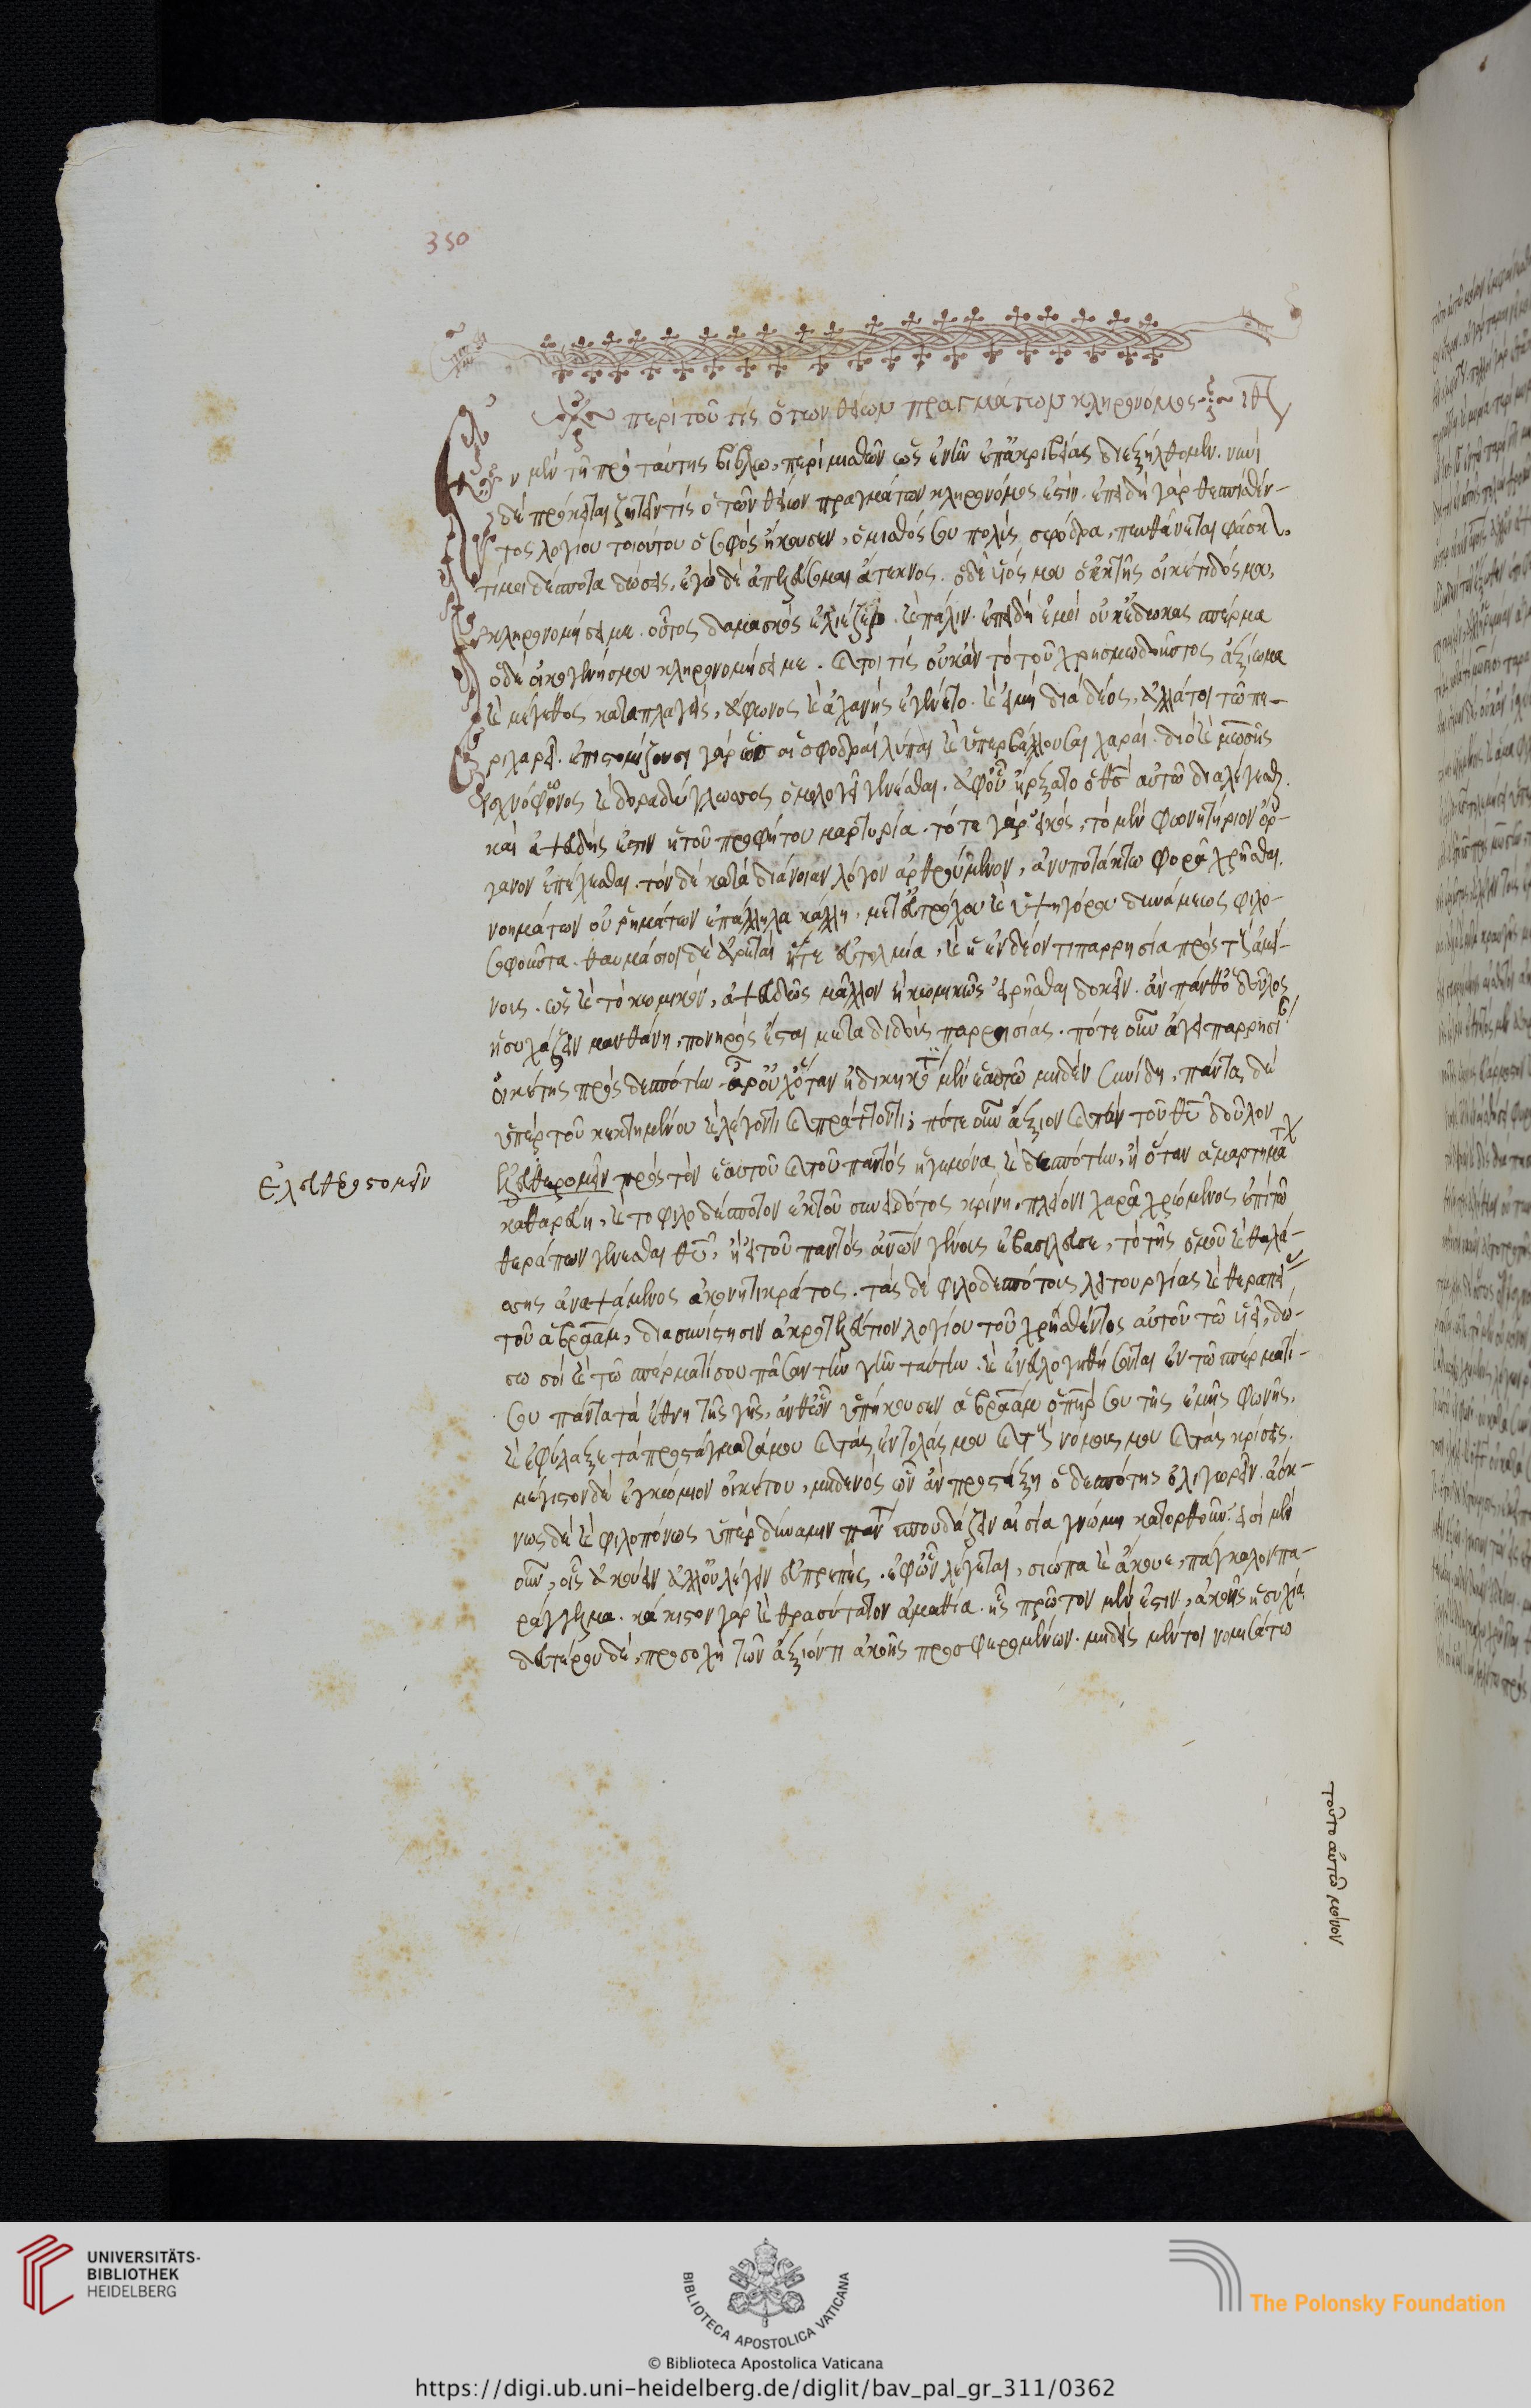 350
περὶ τοῦ τίς ὁ τῶν θείων πραγμάτων κληρονόμος ιθ
Ἐν μὲν τῇ πρὸ ταύτης βίβλω, περὶ μισθῶν ὡς ἐνῆν ἐπ' ἀκριβείας διεξήλθομεν. νυνὶ
δὲ πρόκειται ζητεῖν τίς ὁ τῶν θείων πραγμάτων κληρονόμος ἐστίν. ἐπειδὴ γὰρ θεσπισθέν-
τος λογίου τοιούτου ὁ σοφὸς ἤκουσεν, ὁ μισθός σου πολὺς σφόδρα, πυνθάνεται φάσκων.
τί μοι δέσποτα δώσεις, ἐγὼ δὲ ἀπελεύσομαι ἄτεκνος. ὁ δὲ υἱός μου ὁ ἐκ τῆς οἰκέτιδός μου,
κληρονομήσει με. οὗτος δαμασκὸς ἐλιέζερ. καὶ πάλιν. ἐπειδὴ ἐμοὶ οὐκ ἔδωκας σπέρμα
ὁ δὲ οἰκογενής μου κληρονομήσει με. καίτοι τίς οὐκ ἂν τὸ τοῦ χρησμωδοῦντος ἀξίωμα
καὶ μέγεθος καταπλαγείς, ἄφωνος καὶ ἀχανὴς ἐγένετο. καὶ εἰ μὴ διὰ δέος, ἀλλά τοι τῶ πε-
ριχαρεῖ. ἐπιστομίζουσι γὰρ ὡς αἱ σφοδραὶ λύπαι καὶ ὑπερβάλλουσαι χαραί. διὸ καὶ μωσῆς
ἰσχνόφωνος καὶ βραδύγλωσσος ὁμολογεῖ γενέσθαι. ἀφ' οὗ ἤρξατο ὁ θς αὐτῶ διαλέγεσθαι.
καὶ ἀψευδής ἐστιν ἡ τοῦ προφήτου μαρτυρία. τότε γὰρ εἰκός, τὸ μὲν φωνητήριον ὄρ-
γανον ἐπέχεσθαι. τὸν δὲ κατὰ διάνοιαν λόγον ἀρθρούμενον, ἀνυποτάκτω φορᾶ χρῆσθαι.
νοημάτων οὐ ῥημάτων ἐπάλληλα κάλλη, μετ' εὐτρόχου καὶ ὑψηγόρου δυνάμεως φιλο-
σοφοῦντα. θαυμάσιοι δὲ ἀρεταὶ ἥτε εὐτολμία, καὶ ἡ ἐν δέοντι παρρησία πρὸς τοὺς ἀμεί-
νους. ὡς καὶ τὸ κωμικόν, ἀψευδῶς μᾶλλον ἢ κωμικῶς εἰρῆσθαι δοκεῖν. ἂν πάνθ' ὁ δοῦλος
ἡσυχάζειν μανθάνη, πονηρὸς ἔσται μεταδιδοὺς παρρησίας. πότε οὖν ἄγει παρρησίαν
οἰκέτης πρὸς δεσπότην. ἆρ' οὐχ ὅταν ἠδικηκότι μὲν ἑαυτῶ μηδὲν συνίδη, πάντα δὲ
ὑπὲρ τοῦ κεκτημένου καὶ λέγοντι καὶ πράττοντι; πότε οὖν ἄξιον καὶ τὸν τοῦ θυ δοῦλον
ἐλευθεροστομεῖν πρὸς τὸν ἑαυτοῦ καὶ τοῦ παντὸς ἡγεμόνα καὶ δεσπότην, ἢ ὅταν ἁμαρτημάτων
Ἐλευθεροστομεῖν
καθαρεύη, καὶ τὸ φιλοδέσποτον ἐκ τοῦ συνειδότος κρίνη, πλείονι χαρᾶ χρώμενος ἐπὶ τῶ
θεράπων γενέσθαι θυ, ἢ εἰ τοῦ παντὸς ἀνων γένους ἐβασίλευσε, τὸ γῆς ὁμοῦ καὶ θαλά-
σσης ἀναψάμενος ἀκονιτὶ κράτος. τὰς δὲ φιλοδεσπότοις λειτουργίας καὶ θεραπείας
τοῦ ἀβραὰμ, διασυνίστησιν ἀκροτελεύτιον λογίου τοῦ χρησθέντος αὐτοῦ τῶ υἱεῖ, δώ-
σω σοὶ καὶ τῶ σπέρματί σου πᾶσαν τὴν γῆν ταύτην. καὶ ἐνευλογηθήσονται ἐν τῶ σπέρματί
σου πάντα τὰ ἔθνη τῆς γῆς, ἀνθ' ὧν ὑπήκουσεν ἀβραὰμ ὁ πηρ σου τῆς ἐμῆς φωνῆς,
καὶ ἐφύλαξε τὰ προστάγματά μου καὶ τὰς ἐντολάς μου καὶ τοὺς νόμους μου καὶ τὰς κρίσεις.
μέγιστον δὲ ἐγκώμιον οἰκέτου, μηδενὸς ὧν ἂν προστάξη ὁ δεσπότης ὀλιγωρεῖν. ἀόκ-
νως δὲ καὶ φιλοπόνως ὑπὲρ δύναμιν πάντα σπουδάζειν αἰσία γνώμη κατορθοῦν. εἰσὶ μὲν
οὖν, οἷς ἀκούειν ἀλλ' οὐ λέγειν εὐπρεπές. ἐφ' ὧν λέγεται, σιώπα καὶ ἄκουε, πάγκαλον πα-
ράγγελμα. κάκιστον γὰρ καὶ θρασύτατον ἀμαθία. ἧς πρῶτον μὲν ἐστιν, ἄκος ἡσυχία
δεύτερον δὲ, προσοχὴ τῶν ἄξιόν τι ἀκοῆς προσφερομένων. μηδεὶς μέντοι νομισάτω
τοῦτο αὐτῶ μόνον
UNIVERSITÄTS-
BIBLIOTHEK
HEIDELBERG
BIBLIOTECA APOSTOLICA VATICANA
The Polonsky Foundation
© Biblioteca Apostolica Vaticana
https://digi.ub.uni-heidelberg.de/diglit/bav_pal_gr_311/0362